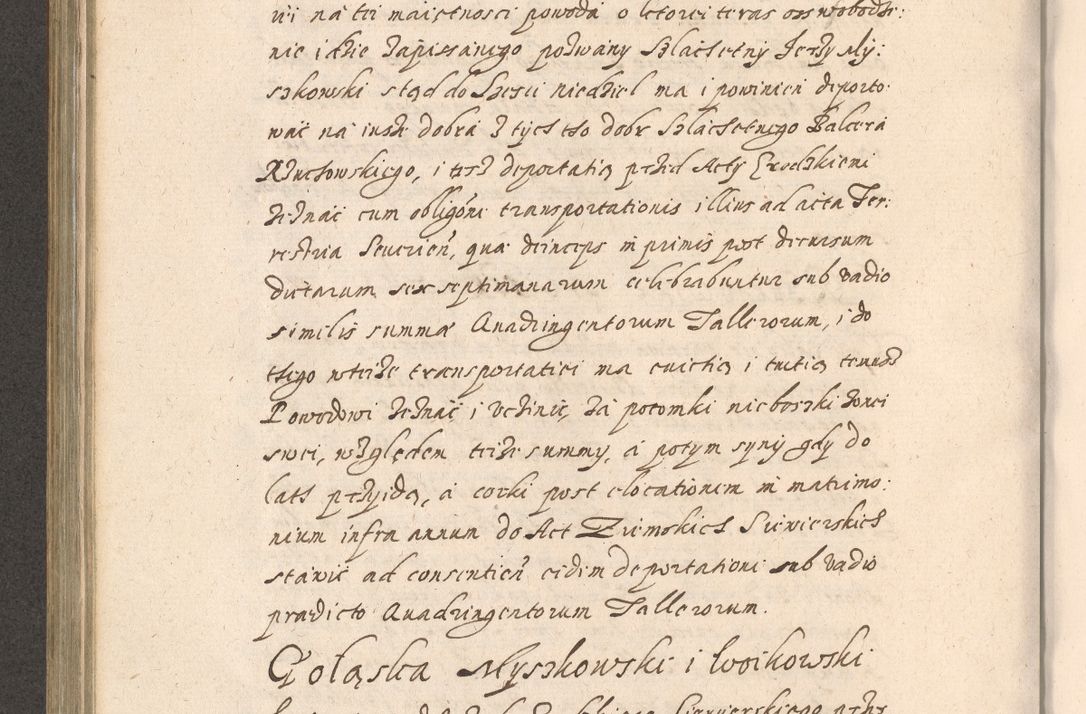 na tei maiętnosci powoda o ktorei teras
nie i tkie zapissanego pozwany Szlachetny Jerzy My:
szkowski stąd do Szesci niedziel ma i powinien deporto:
wać na insze dobra z tych tho dobr Szlachetnego Balcera
i też deportatią przed Acty Grodzkiemi
zeznać cum obligōne transportationis illius ad acta Ter:
restria Severień, quæ deinceps in primis post decursum
dictarum sex septimanarum celebrabuntur sub vadio
similis summæ Quadringentorum Tallerorum, i do
thego wteize transportatiei ma evictią i tutią
Powodowi zeznać i uczinić, za potomki nieboszki żonei
swei, względem teize summy, a potym syny gdy do
lath przyidą, a corki post elocationem in matrimo:
nium infra annum do Act Ziemskich Siewierskich
stawić ad consentień eidem deportationi sub vadio
prædicto Quadringentorum Tallerorum.
Gołąska Myszkowski i Woikowski